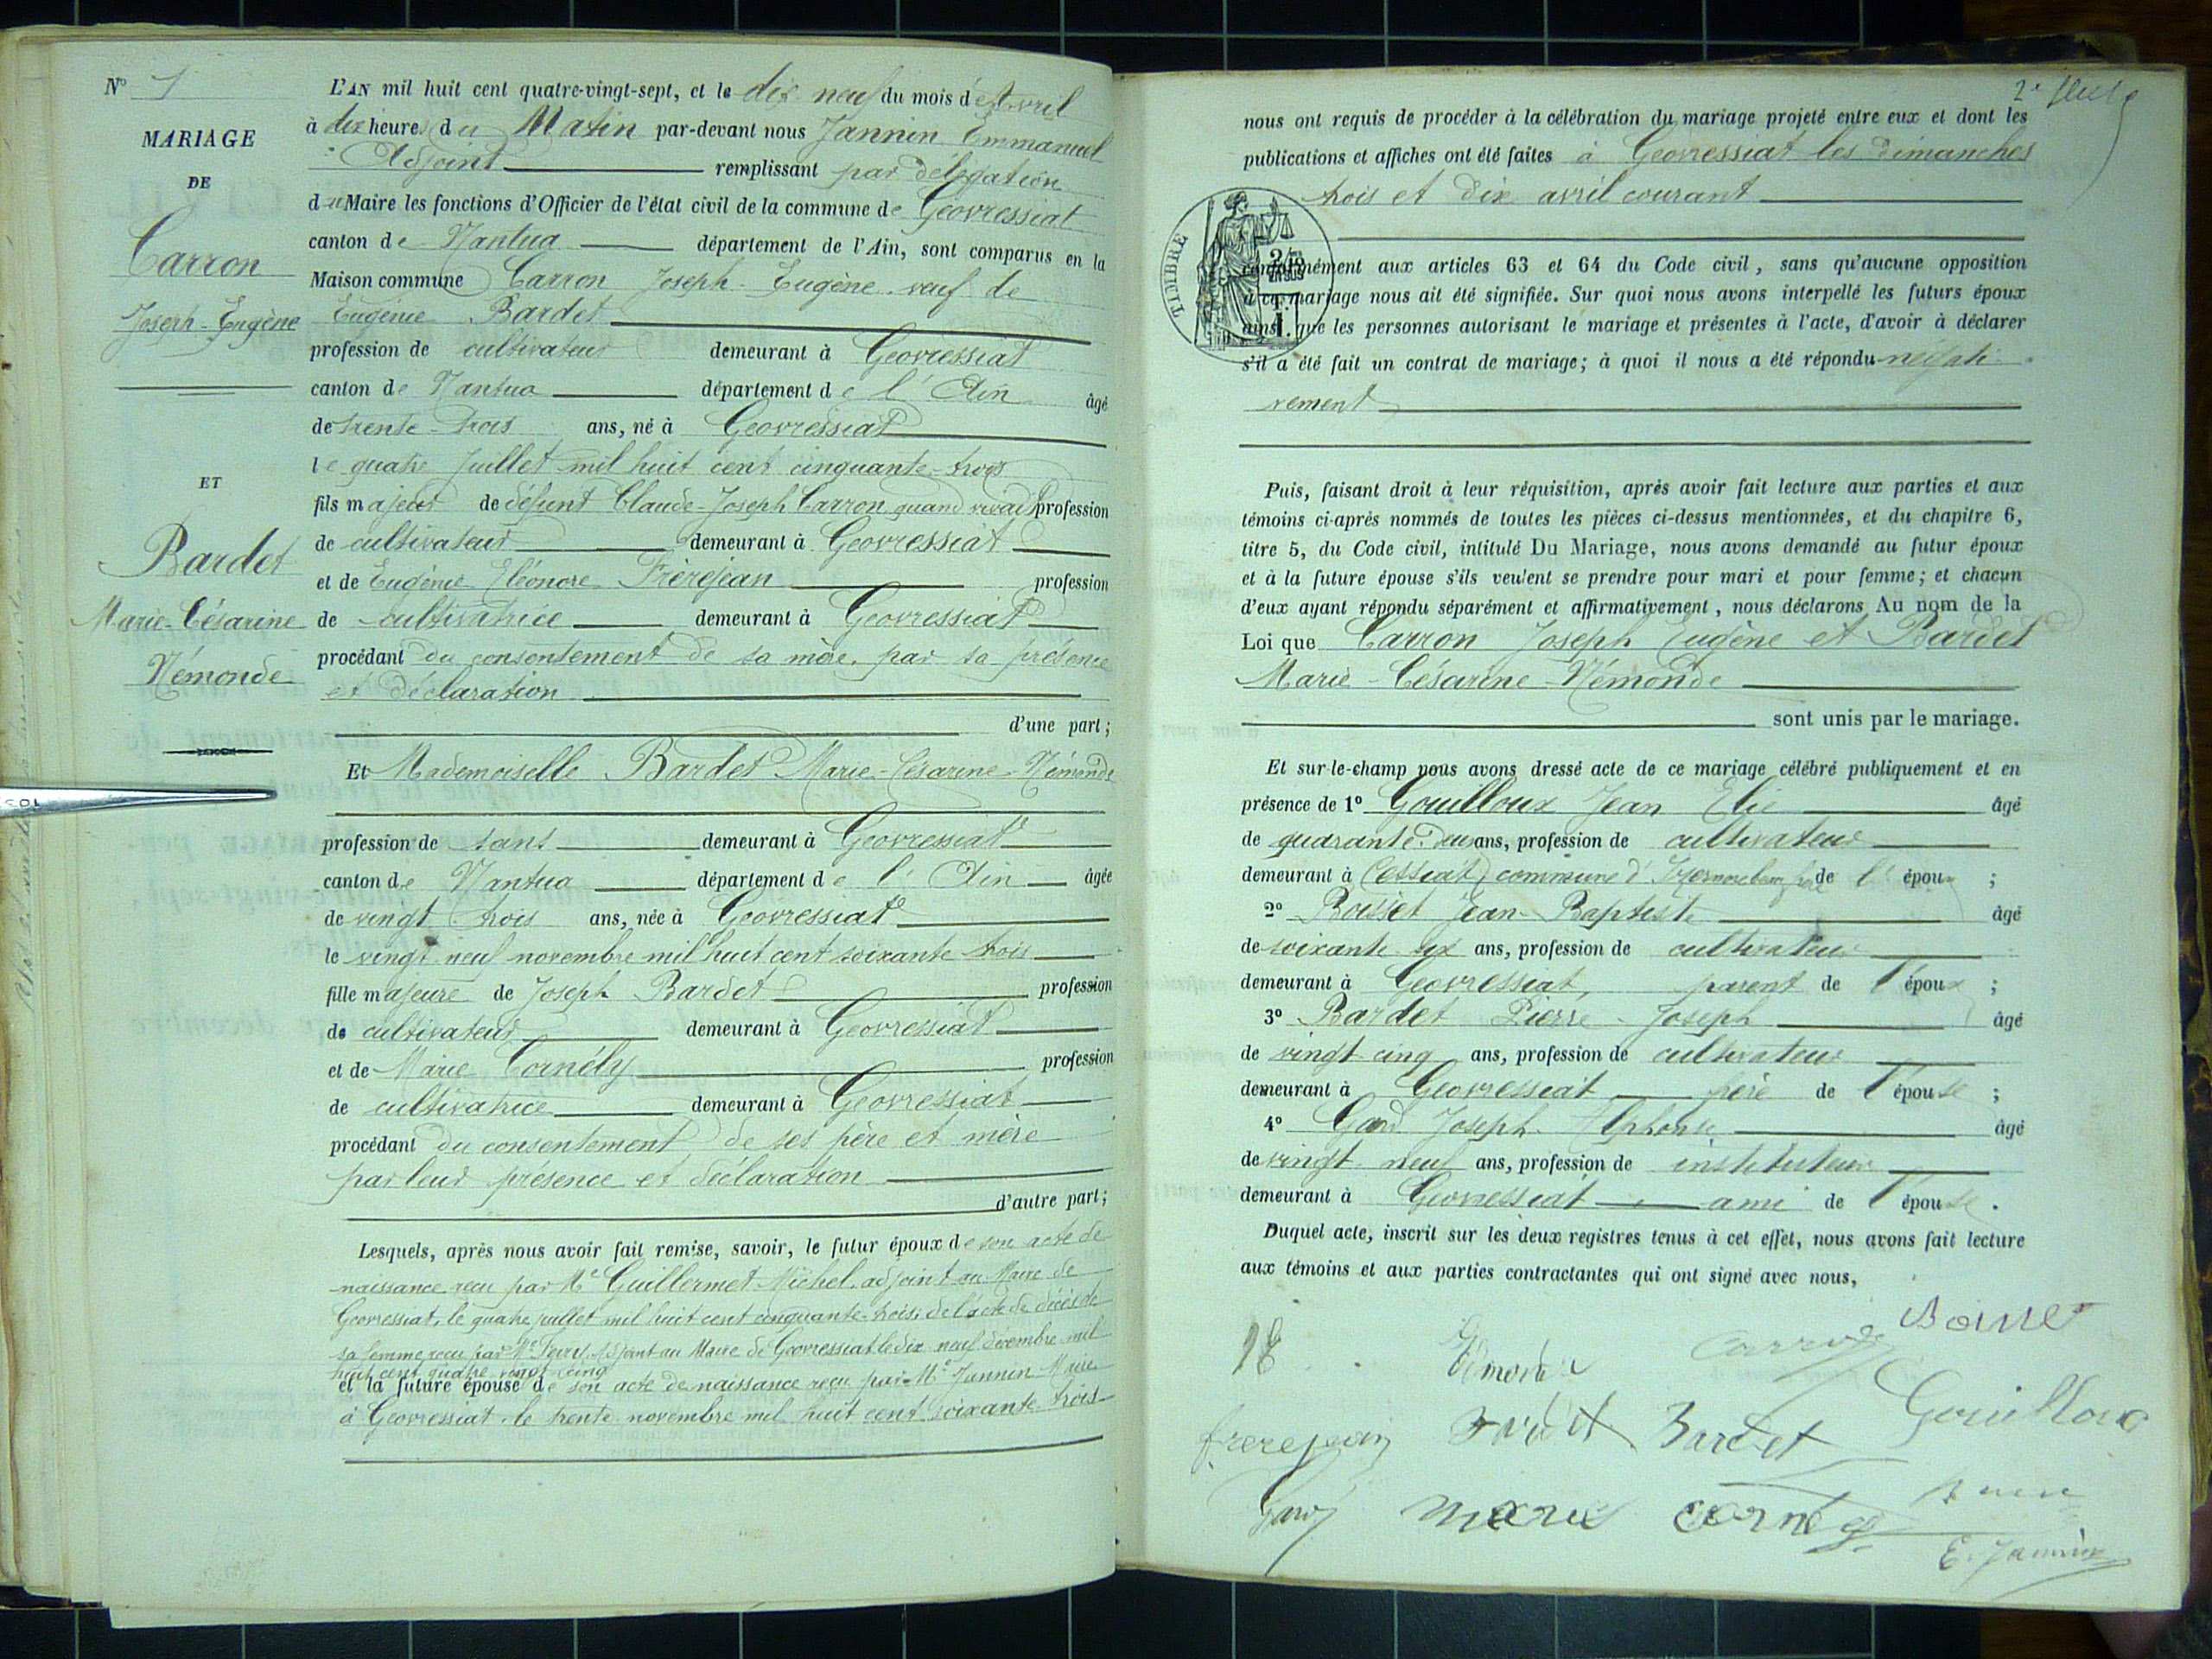 N° 1
MARIAGE
DE
Carron
Joseph-Eugène
ET
Bardet
Marie-Césarine
Némonde
L'AN mil huit cent quatre-vingt-sept, et le dix neuf du mois d'Avril
à dix heures du Matin par-devant nous Jannin Emmanuel
Adjoint remplissant par délégation
du Maire les fonctions d'Officier de l'état civil de la commune de Géovressiat
canton de Nantua département de l'Ain, sont comparus en la
Maison commune Carron Joseph-Eugène veuf de
Eugénie Bardet
profession de cultivateur demeurant à Géovressiat
canton de Nantua département de l'Ain âgé
de trente-trois ans, né à Géovressiat
le quatre Juillet mil huit cent cinquante-trois
fils majeur de défunt Claude-Joseph Carron quand vivait profession
de cultivateur demeurant à Géovressiat
et de Eugénie Eléonore Frèrejean profession
de cultivatrice demeurant à Géovressiat
procédant du consentement de sa mère, par sa présence
et déclaration
d'une part;
Et Mademoiselle Bardet Marie-Césarine-Némonde
profession de sans demeurant à Géovressiat
canton de Nantua département de l'Ain âgée
de vingt trois ans, née à Géovressiat
le vingt neuf novembre mil huit cent soixante trois
fille majeure de Joseph Bardet profession
de cultivateur demeurant à Géovressiat
et de Marie Cornély profession
de cultivatrice demeurant à Géovressiat
procédant du consentement de ses père et mère
par leur présence et déclaration
d'autre part;
Lesquels, après nous avoir fait remise, savoir, le futur époux de son acte de
naissance reçu par Me Guillermet Michel, adjoint au Maire de
Géovressiat, le quatre juillet mil huit cent cinquante-trois; de l'acte de décès de
sa femme reçu par Me adjoint au Maire de Géovressiat le dix neuf décembre mil
huit cent quatre vingt cinq
et la future épouse de son acte de naissance reçu par Me Jannin Maire
à Géovressiat, le trente novembre mil huit cent soixante-trois
nous ont requis de procéder à la célébration du mariage projeté entre eux et dont les
publications et affiches ont été faites à Géovressiat les dimanches
trois et dix avril courant
TIMBRE
conformément aux articles 63 et 64 du Code civil, sans qu'aucune opposition
à ce mariage nous ait été signifiée. Sur quoi nous avons interpellé les futurs époux
ainsi que les personnes autorisant le mariage et présentes à l'acte, d'avoir à déclarer
s'il a été fait un contrat de mariage; à quoi il nous a été répondu négati-
vement
Puis, faisant droit à leur réquisition, après avoir fait lecture aux parties et aux
témoins ci-après nommés de toutes les pièces ci-dessus mentionnées, et du chapitre 6,
titre 5, du Code civil, intitulé Du Mariage, nous avons demandé au futur époux
et à la future épouse s'ils veulent se prendre pour mari et pour femme; et chacun
d'eux ayant répondu séparément et affirmativement, nous déclarons Au nom de la
Loi que Carron Joseph Eugène et Bardet
Marie-Césarine-Némonde
sont unis par le mariage.
Et sur-le-champ nous avons dressé acte de ce mariage célébré publiquement et en
présence de 1° Gouilloux Jean Elie âgé
de quarante-deux ans, profession de cultivateur
demeurant à Cessiat commune d'Izernore de l'époux ;
2° Boisset Jean-Baptiste âgé
de soixante six ans, profession de cultivateur
demeurant à Géovressiat, parent de l'époux ;
3° Bardet Pierre-Joseph âgé
de vingt cinq ans, profession de cultivateur
demeurant à Géovressiat de l'épouse ;
4° Gard Joseph-Alphonse âgé
de vingt neuf ans, profession de instituteur
demeurant à Géovressiat ami de l'épouse.
Duquel acte, inscrit sur les deux registres tenus à cet effet, nous avons fait lecture
aux témoins et aux parties contractantes qui ont signé avec nous,
Carron
frerejean Bardet Bardet Gouilloux
Gard Marie
E. Jannin